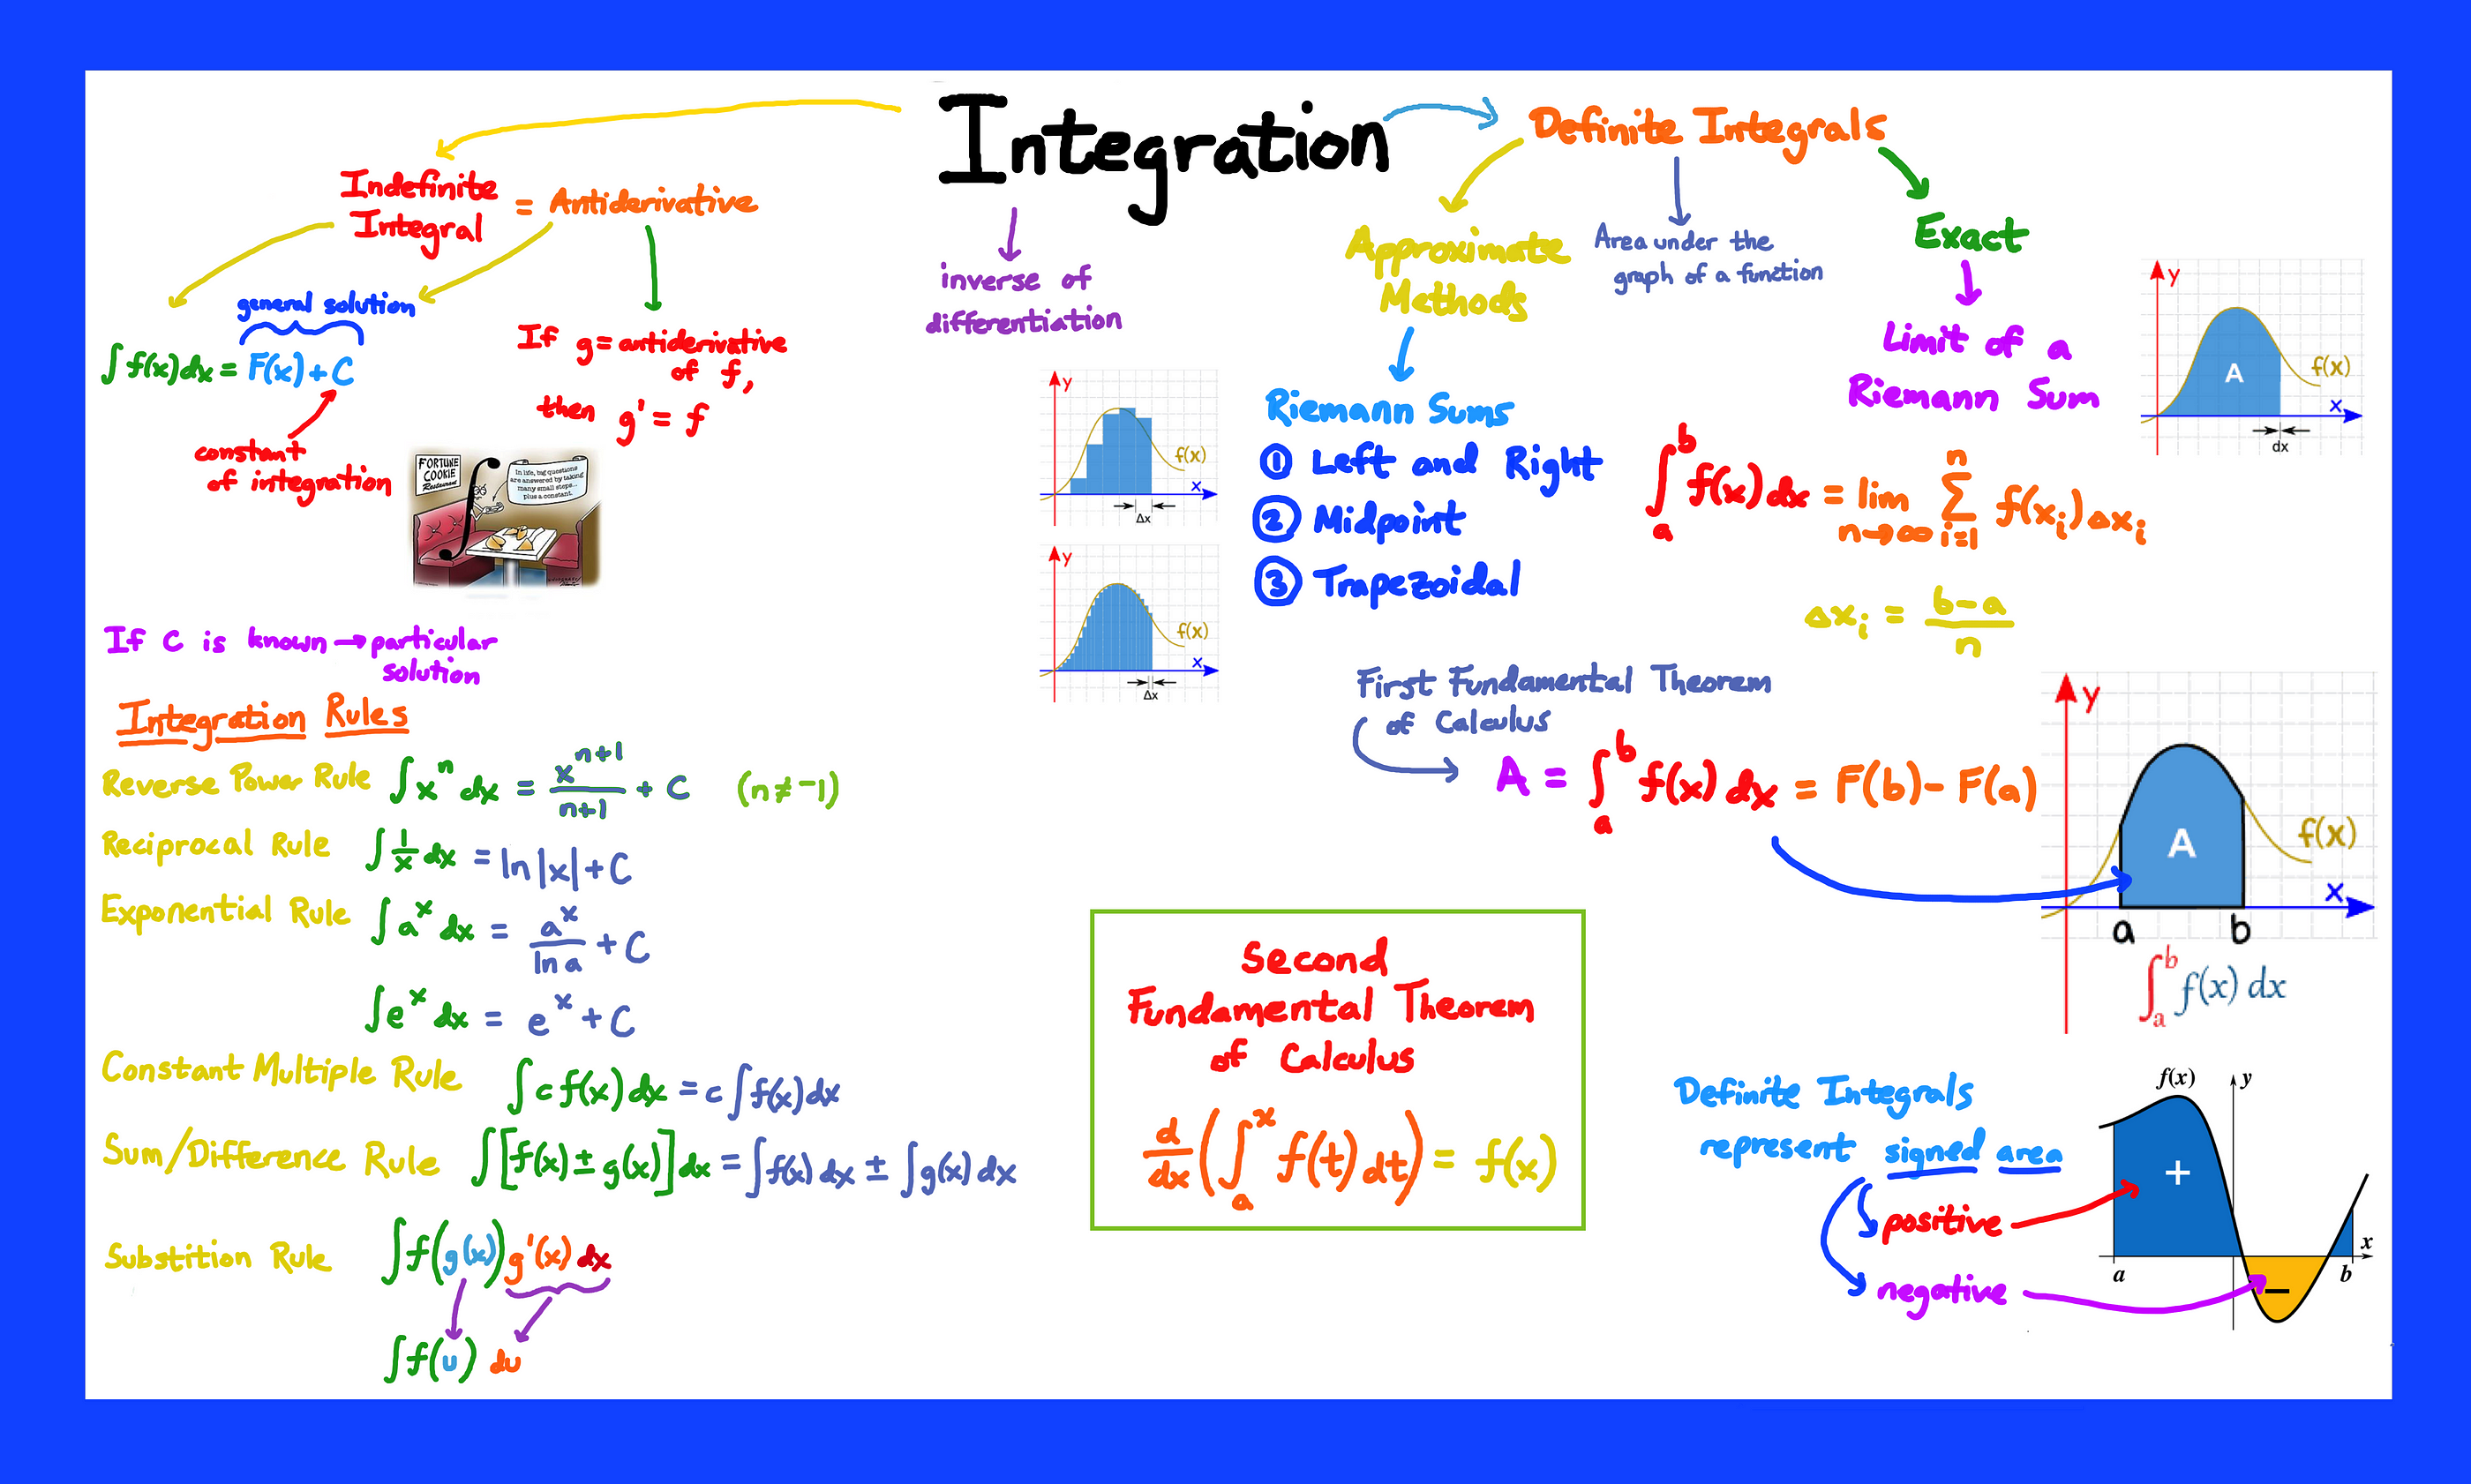 Integration
inverse of
differentiation
Indefinite
Integral
= Antiderivative
general solution
∫ f(x) dx = F(x) + C
constant
of integration
If g = antiderivative
of f,
then g' = f
FORTUNE
COOKIE
Restaurant
In life, big questions
are answered by taking
many small steps...
plus a constant.
If C is known → particular
solution
Integration Rules
Reverse Power Rule ∫ x^n dx = x^(n+1)/(n+1) + C (n ≠ -1)
Reciprocal Rule ∫ 1/x dx = ln|x| + C
Exponential Rule ∫ a^x dx = a^x/ln a + C
∫ e^x dx = e^x + C
Constant Multiple Rule ∫ c f(x) dx = c ∫ f(x) dx
Sum/Difference Rule ∫ [f(x) ± g(x)] dx = ∫ f(x) dx ± ∫ g(x) dx
Substition Rule ∫ f(g(x)) g'(x) dx
∫ f(u) du
Definite Integrals
Approximate
Methods
Area under the
graph of a function
Exact
Riemann Sums
① Left and Right
② Midpoint
③ Trapezoidal
y
f(x)
x
Δx
y
f(x)
x
Δx
Limit of a
Riemann Sum
∫_a^b f(x) dx = lim n→∞ Σ_{i=1}^n f(x_i) Δx_i
Δx_i = (b-a)/n
y
A
f(x)
x
dx
First Fundamental Theorem
of Calculus
A = ∫_a^b f(x) dx = F(b) - F(a)
y
A
f(x)
x
a b
∫_a^b f(x) dx
Second
Fundamental Theorem
of Calculus
d/dx (∫_a^x f(t) dt) = f(x)
Definite Integrals
represent signed area
positive
negative
f(x) y
+
x
a b
−